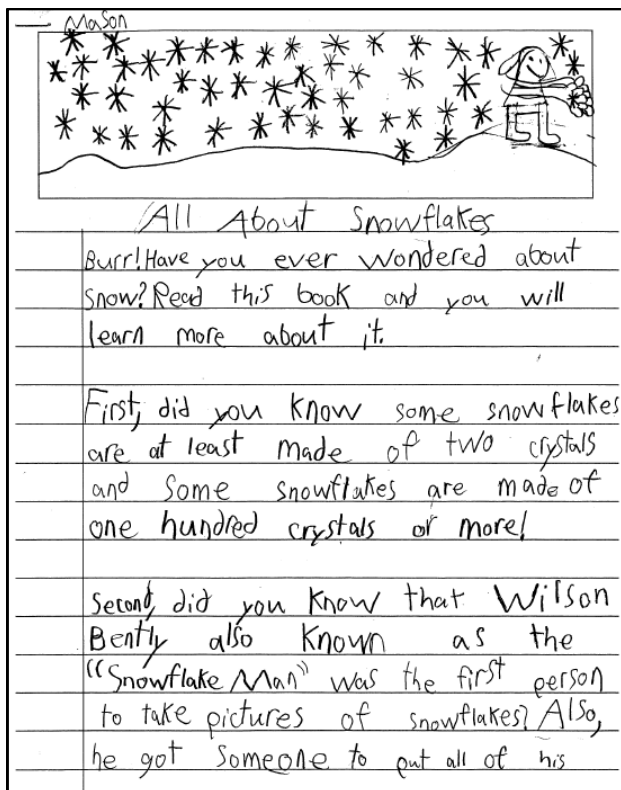 Mason
All About Snowflakes
Burr! Have you ever wondered about
snow? Read this book and you will
learn more about it.
First, did you know some snowflakes
are at least made of two crystals
and some snowflakes are made of
one hundred crystals or more!
Second, did you know that Wilson
Bently also known as the
"Snowflake Man" was the first person
to take pictures of snowflakes? Also,
he got someone to put all of his